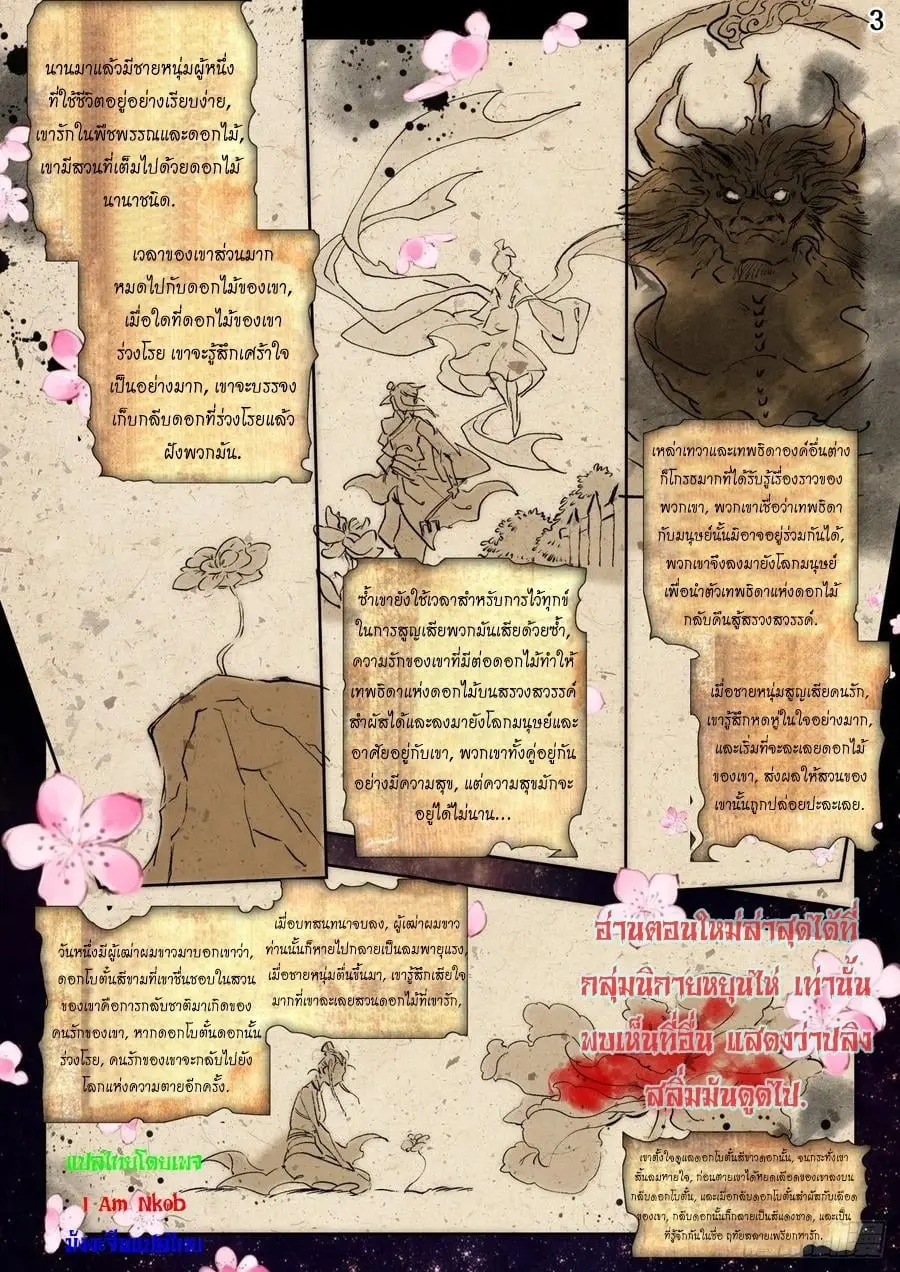 3
นานมาแล้วมีชายหนุ่มผู้หนึ่ง
ที่ใช้ชีวิตอยู่อย่างเรียบง่าย,
เขารักในพืชพรรณและดอกไม้,
เขามีสวนที่เต็มไปด้วยดอกไม้
นานาชนิด.
เวลาของเขาส่วนมาก
หมดไปกับดอกไม้ของเขา,
เมื่อใดที่ดอกไม้ของเขา
ร่วงโรย เขาจะรู้สึกเศร้าใจ
เป็นอย่างมาก, เขาจะบรรจง
เก็บกลีบดอกที่ร่วงโรยแล้ว
ฝังพวกมัน.
ซ้ำเขายังใช้เวลาสำหรับการไว้ทุกข์
ในการสูญเสียพวกมันเสียด้วยซ้ำ,
ความรักของเขาที่มีต่อดอกไม้ทำให้
เทพธิดาแห่งดอกไม้บนสรวงสวรรค์
สำผัสได้และลงมายังโลกมนุษย์และ
อาศัยอยู่กับเขา, พวกเขาทั้งคู่อยู่กัน
อย่างมีความสุข, แต่ความสุขมักจะ
อยู่ได้ไม่นาน...
เหล่าเทวาและเทพธิดาองค์อื่นต่าง
ก็โกรธมากที่ได้รับรู้เรื่องราวของ
พวกเขา, พวกเขาเชื่อว่าเทพธิดา
กับมนุษย์นั้นมิอาจอยู่ร่วมกันได้,
พวกเขาจึงลงมายังโลกมนุษย์
เพื่อนำตัวเทพธิดาแห่งดอกไม้
กลับคืนสู้สรวงสวรรค์.
เมื่อชายหนุ่มสูญเสียคนรัก,
เขารู้สึกหดหู่ในใจอย่างมาก,
และเริ่มที่จะละเลยดอกไม้
ของเขา, ส่งผลให้สวนของ
เขานั้นถูกปล่อยปะละเลย.
วันหนึ่งมีผู้เฒ่าผมขาวมาบอกเขาว่า,
ดอกโบตั๋นสีขามที่เขาชื่นชอบในสวน
ของเขาคือการกลับชาติมาเกิดของ
คนรักของเขา, หากดอกโบตั๋นดอกนั้น
ร่วงโรย, คนรักของเขาจะกลับไปยัง
โลกแห่งความตายอีกครั้ง.
เมื่อบทสนทนาจบลง, ผู้เฒ่าผมขาว
ท่านนั้นก็หายไปกลายเป็นลมพายุแรง,
เมื่อชายหนุ่มตื่นขึ้นมา, เขารู้สึกเสียใจ
มากที่เขาละเลยสวนดอกไม้ที่เขารัก,
อ่านตอนใหม่ล่าสุดได้ที่
กลุ่มนิกายหยุนไห่ เท่านั้น
พบเห็นที่อื่น แสดงว่าปลิง
สลิ่มมันดูดไป.
เขาตั้งใจดูแลดอกโบตั๋นสีขาวดอกนั้น, จนกระทั่งเขา
สิ้นลมหายใจ, ก่อนตายเขาได้หยดเลือดของเขาลงบน
กลีบดอกโบตั๋น, และเมื่อกลีบดอกโบตั๋นสำผัสกับเลือด
ของเขา, กลีบดอกนั้นก็กลายเป็นสีแดงชาด, และเป็น
ที่รู้จักกันในชื่อ ฤทัยสลายเพรียกหารัก.
แปลไทยโดยเพจ
I Am Nkob